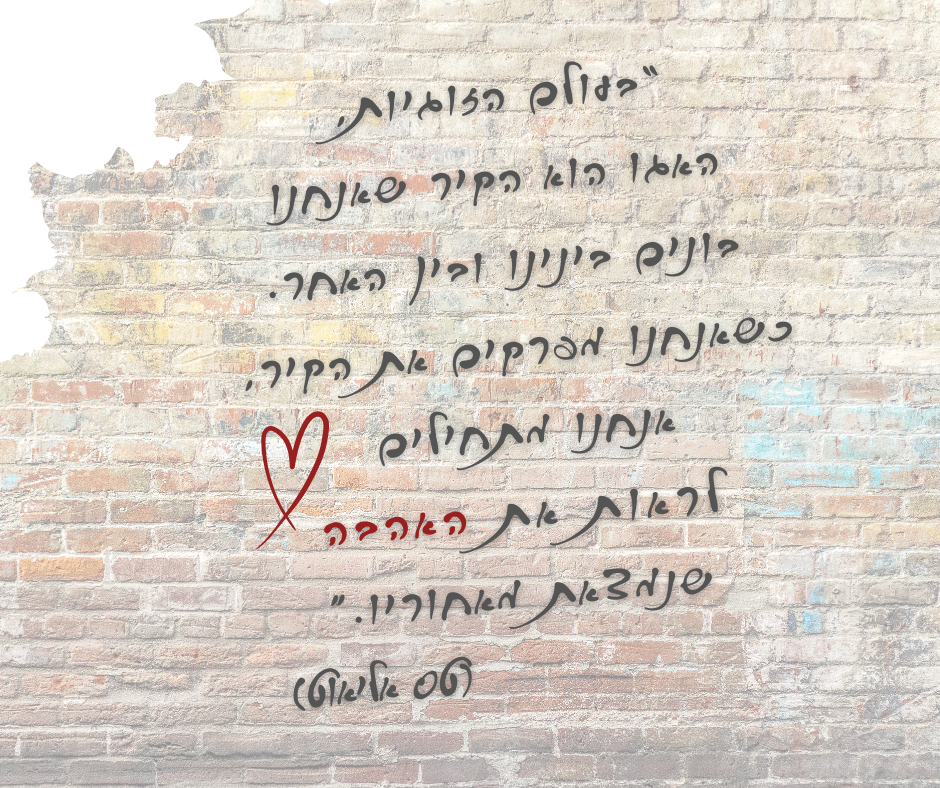 "בעולם הזוגיות,
האגו הוא הקיר שאנחנו
בונים בינינו ובין האחר.
כשאנחנו מפרקים את הקיר,
אנחנו מתחילים
לראות את האהבה
שנמצאת מאחוריו."
(טס אליאוט)